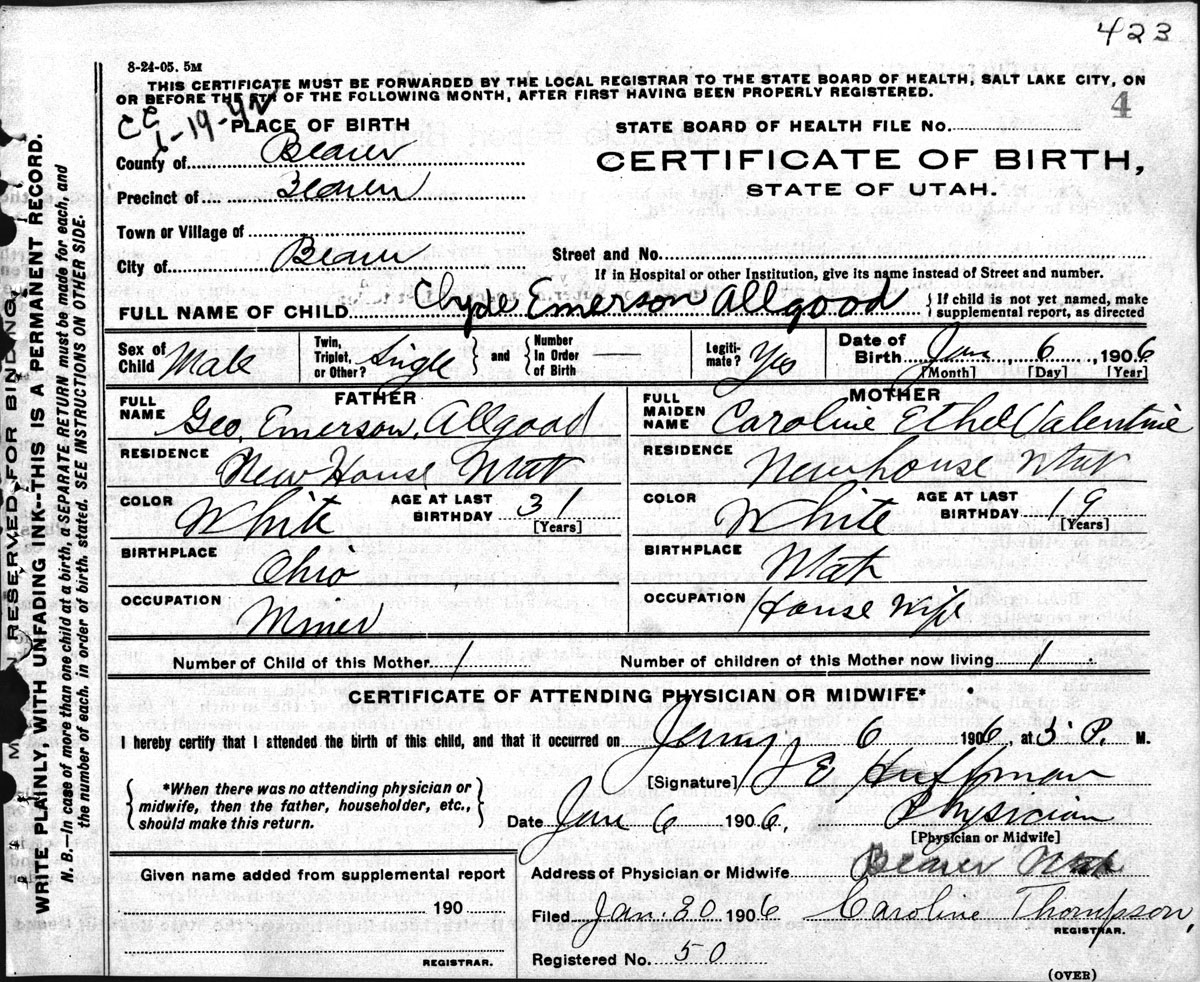 423
8-24-05. 5M
THIS CERTIFICATE MUST BE FORWARDED BY THE LOCAL REGISTRAR TO THE STATE BOARD OF HEALTH, SALT LAKE CITY, ON
OR BEFORE THE 5TH OF THE FOLLOWING MONTH, AFTER FIRST HAVING BEEN PROPERLY REGISTERED.
4
CC 6-19-42
PLACE OF BIRTH
STATE BOARD OF HEALTH FILE No.
County of Beaver
CERTIFICATE OF BIRTH,
Precinct of Beaver
STATE OF UTAH.
Town or Village of
City of Beaver
Street and No.
If in Hospital or other Institution, give its name instead of Street and number.
FULL NAME OF CHILD Clyde Emerson Allgood
{If child is not yet named, make
supplemental report, as directed
Sex of Child Male
Twin, Triplet, or Other? Single } and { Number In Order of Birth —
Legitimate? Yes
Date of Birth Jan, 6, 1906
[Month] [Day] [Year]
FATHER
MOTHER
FULL NAME Geo. Emerson. Allgood
FULL MAIDEN NAME Caroline Ethel Valentine
RESIDENCE New House Utah
RESIDENCE Newhouse Utah
COLOR White AGE AT LAST BIRTHDAY 31 [Years]
COLOR White AGE AT LAST BIRTHDAY 19 [Years]
BIRTHPLACE Ohio
BIRTHPLACE Utah
OCCUPATION Miner
OCCUPATION House Wife
Number of Child of this Mother 1
Number of children of this Mother now living 1
CERTIFICATE OF ATTENDING PHYSICIAN OR MIDWIFE*
I hereby certify that I attended the birth of this child, and that it occurred on 6 1906, at 3 P. M.
[Signature] J E Huffman
{*When there was no attending physician or
midwife, then the father, householder, etc.,
should make this return.}
Date Jan 6 1906, Physician
[Physician or Midwife]
Address of Physician or Midwife Beaver Utah
Given name added from supplemental report
190
REGISTRAR.
Filed Jan. 30 1906 Caroline Thompson,
REGISTRAR.
Registered No. 50
(OVER)
MARGIN RESERVED FOR BINDING.
WRITE PLAINLY, WITH UNFADING INK--THIS IS A PERMANENT RECORD.
N. B.—In case of more than one child at a birth, a SEPARATE RETURN must be made for each, and
the number of each, in order of birth, stated. SEE INSTRUCTIONS ON OTHER SIDE.